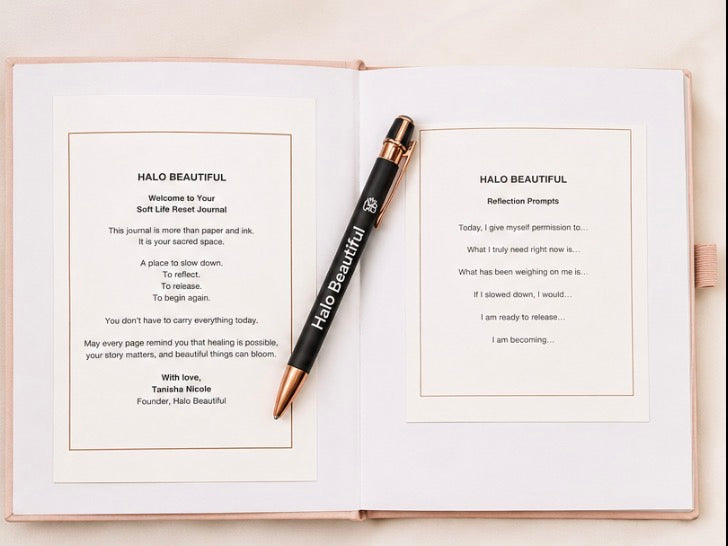 HALO BEAUTIFUL
Welcome to Your
Soft Life Reset Journal
This journal is more than paper and ink.
It is your sacred space.
A place to slow down.
To reflect.
To release.
To begin again.
You don't have to carry everything today.
May every page remind you that healing is possible,
your story matters, and beautiful things can bloom.
With love,
Tanisha Nicole
Founder, Halo Beautiful
Halo Beautiful
HALO BEAUTIFUL
Reflection Prompts
Today, I give myself permission to...
What I truly need right now is...
What has been weighing on me is...
If I slowed down, I would...
I am ready to release...
I am becoming...